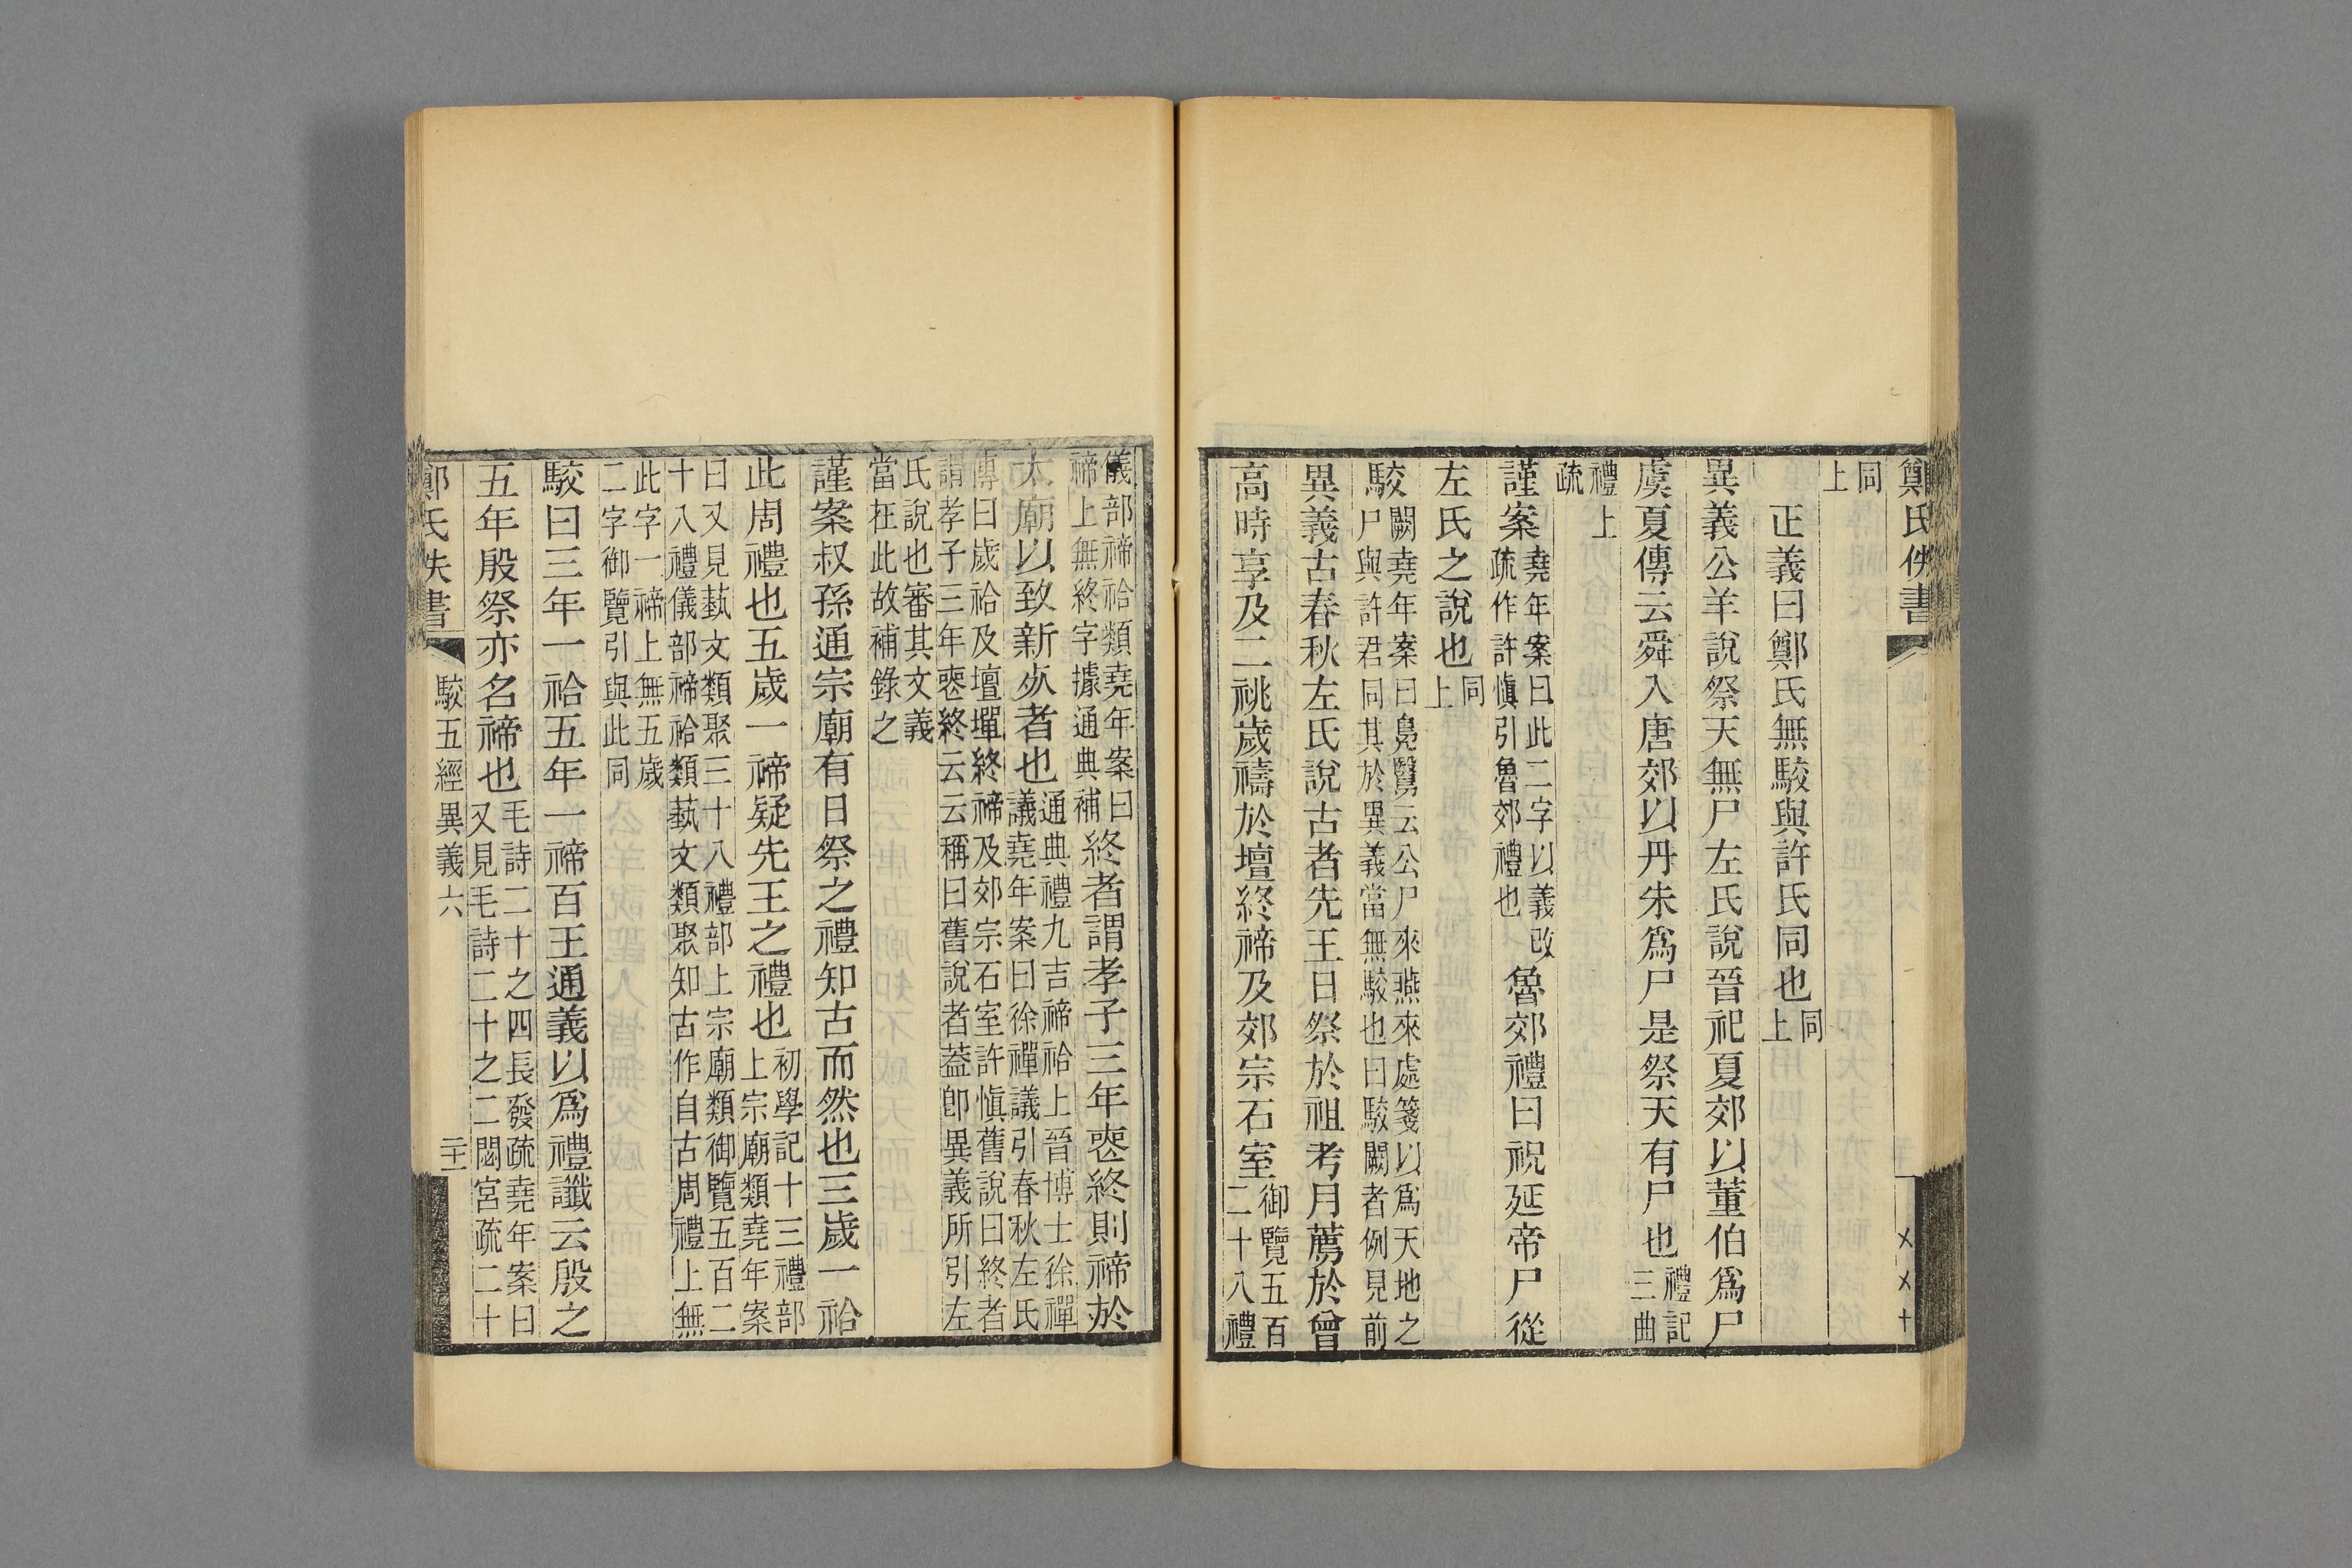 鄭氏佚書
同上
正義曰鄭氏無駮與許氏同也同上
異義公羊說祭天無尸左氏說晉祀夏郊以董伯爲尸
虞夏傳云舜入唐郊以丹朱爲尸是祭天有尸也禮記三曲
禮上疏
謹案堯年案曰此二字以義改疏作許愼引魯郊禮也魯郊禮曰祝延帝尸從
左氏之說也同上
駮闕堯年案曰鳧鷖云公尸來燕來處箋以爲天地之尸與許君同其於異義當無駮也曰駮闕者例見前
異義古春秋左氏說古者先王日祭於祖考月薦於曾
高時享及二祧歲禱於壇終禘及郊宗石室御覽五百二十八禮
儀部禘祫類堯年案曰禘上無終字據通典補終者謂孝子三年喪終則禘於
太廟以致新死者也通典禮九吉禘祫上晉博士徐禪議堯年案曰徐禪議引春秋左氏
傳曰歲祫及壇墠終禘及郊宗石室許愼舊說曰終者謂孝子三年喪終云云稱曰舊說者葢卽異義所引左
氏說也審其文義當在此故補錄之
謹案叔孫通宗廟有日祭之禮知古而然也三歲一祫
此周禮也五歲一禘疑先王之禮也初學記十三禮部上宗廟類堯年案
曰又見蓺文類聚三十八禮部上宗廟類御覽五百二十八禮儀部禘祫類蓺文類聚知古作自古周禮上無
此字一禘上無五歲二字御覽引與此同
駮曰三年一祫五年一禘百王通義以爲禮讖云殷之
五年殷祭亦名禘也毛詩二十之四長發疏堯年案曰又見毛詩二十之二閟宮疏二十
鄭氏佚書　駮五經異義六　二十一